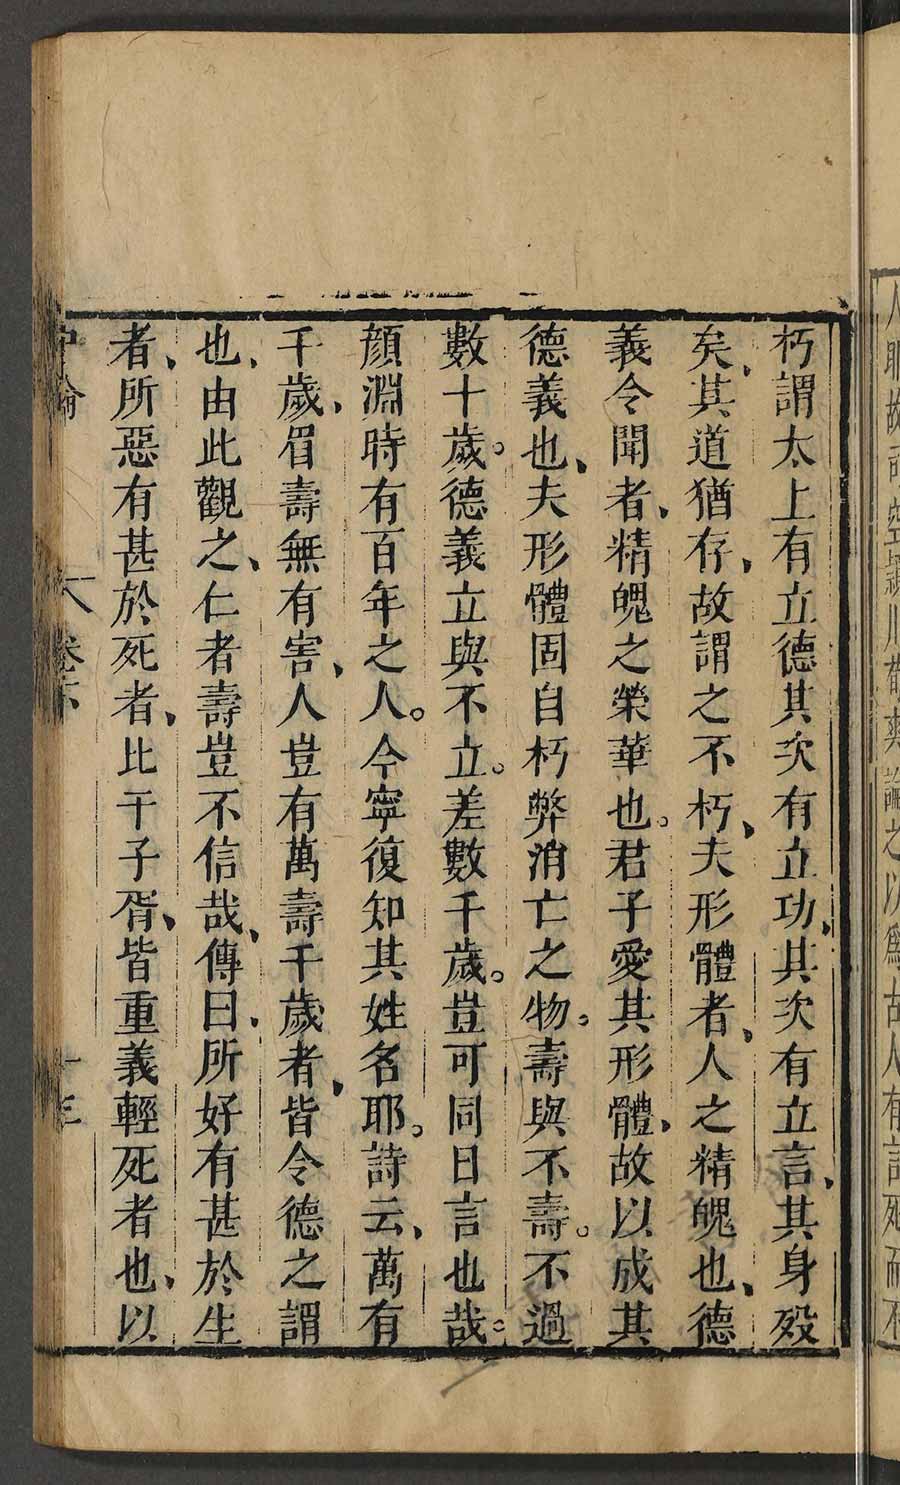 人耶故司空潁川荀爽論之以爲古人有言死而不
朽謂太上有立德其次有立功、其次有立言、其身殁
矣、其道猶存、故謂之不朽、夫形體者、人之精魄也、德
義令聞者、精魄之榮華也。君子愛其形體、故以成其
德義也、夫形體固自朽弊消亡之物。壽與不壽。不過
數十歲。德義立與不立。差數千歲。豈可同日言也哉。
顏淵時有百年之人。今寧復知其姓名耶。詩云、萬有
千歲、眉壽無有害、人豈有萬壽千歲者、皆令德之謂
也、由此觀之、仁者壽豈不信哉、傳曰、所好有甚於生
者、所惡有甚於死者、比干子胥、皆重義輕死者也、以
中論 卷下 十三